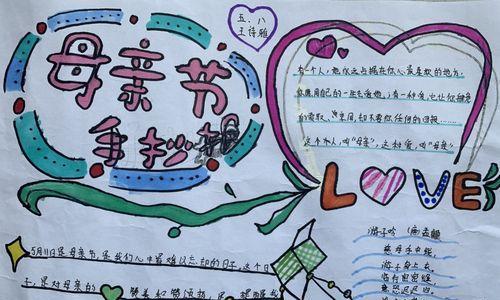 母亲节
手抄报
五.八
王诗雅
有个人,她永远占据在你心最柔软的地方,
你愿用自己的一生去爱她;有一种爱,它让你随意
的索取、享用,却不要你任何的回报……
这个人,叫“母亲”,这种爱,叫“母爱”
LOVE
游子吟 (唐)孟郊
慈母手中线,
游子身上衣。
临行密密缝,
意恐迟迟归。
5月11日是母亲节,是我们心中最难以忘却的日子,这个日
子,是对母亲的